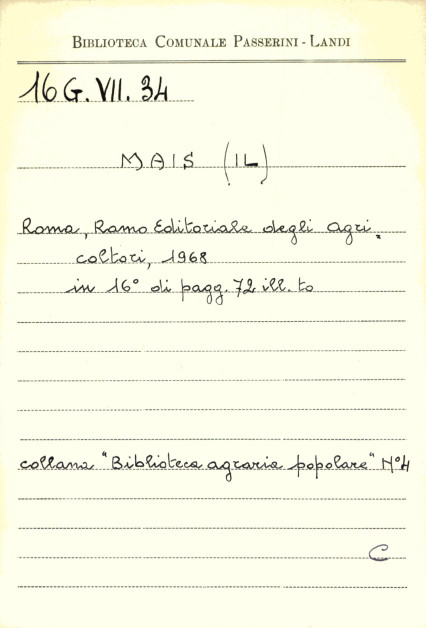 BIBLIOTECA COMUNALE PASSERINI - LANDI
16 G. VII. 34
MAIS (IL)
Roma, Ramo Editoriale degli Agri-
coltori, 1968
in 16° di pagg. 72 ill. to
collana "Biblioteca agraria popolare" N°4
C